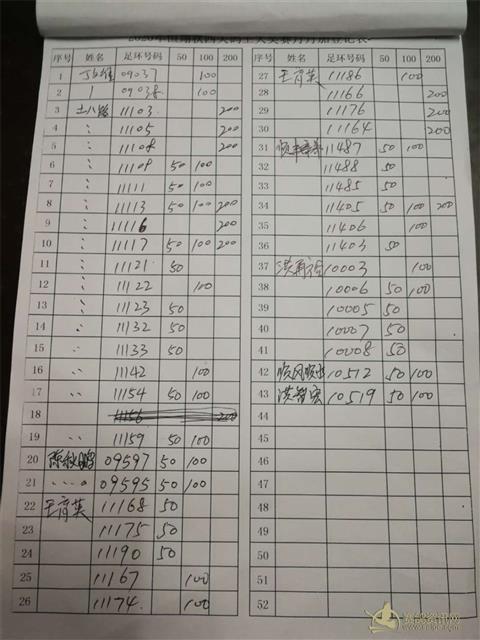 序号 姓名 足环号码 50 100 200
1 09037 100
2 09038 100
3 土八路 11103 200
4 11105 200
5 11108 200
6 11109 50 100
7 11111 50 100
8 11113 50 100 200
9 11116 200
10 11117 50 100 200
11 11121 50
12 11122 100
13 11123 50
14 11132 50
15 11133 50
16 11142 100
17 11154 50 100
18 11156 200
19 11159 50 100
20 陈秋鹏 09597 50 100
21 09595 50 100
22 王育英 11168 50
23 11175 50
24 11190 50
25 11167 100
26 11174 100
序号 姓名 足环号码 50 100 200
27 王育英 11186 100
28 11166 200
29 11176 200
30 11164 200
31 11487 50 100
32 11488 50
33 11485 50
34 11405 50 100 200
35 11406 100
36 11403 50
37 10003 100
38 10006 50 100
39 10005 50
40 10007 50
41 10008 50
42 顺风顺水 10512 50 100
43 洪智宏 10519 50 100
44
45
46
47
48
49
50
51
52